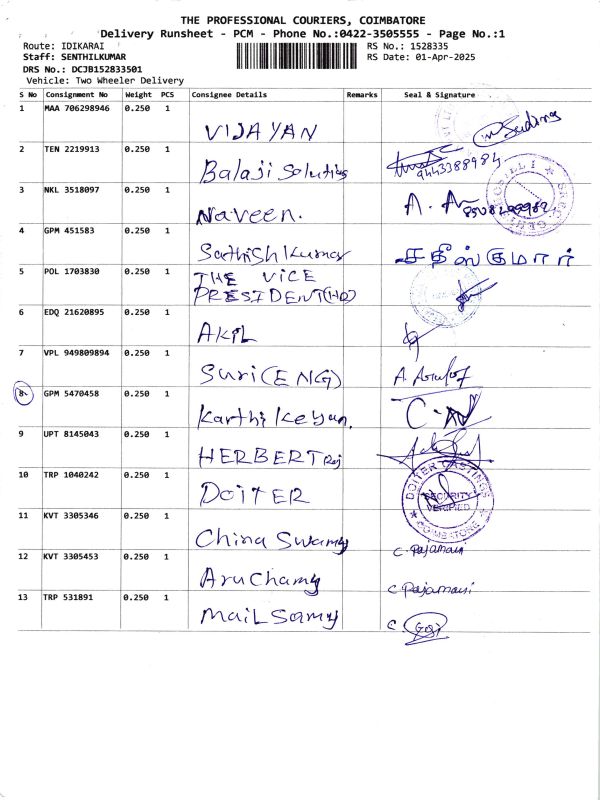 THE PROFESSIONAL COURIERS, COIMBATORE
Delivery Runsheet - PCM - Phone No.:0422-3505555 - Page No.:1
Route: IDIKARAI
RS No.: 1528335
Staff: SENTHILKUMAR
RS Date: 01-Apr-2025
DRS No.: DCJB152833501
Vehicle: Two Wheeler Delivery
S No Consignment No Weight PCS Consignee Details Remarks Seal & Signature
1 MAA 706298946 0.250 1
VIJAYAN
2 TEN 2219913 0.250 1
Balaji Solutins
9443388984
3 NKL 3518097 0.250 1
Naveen.
4 GPM 451583 0.250 1
Sathish Kumar
சதீஸ்குமார்
5 POL 1703830 0.250 1
THE VICE
PRESIDENT(HR)
6 EDQ 21620895 0.250 1
AKIL
7 VPL 949809894 0.250 1
Suri(ENG)
8 GPM 5470458 0.250 1
Karthi Keyan.
9 UPT 8145043 0.250 1
HERBERT Raj
10 TRP 1040242 0.250 1
DOITER
DOITER CASTINGS
SECURITY
VERIFIED
COIMBATORE
11 KVT 3305346 0.250 1
China Swamy
C. Rajamani
12 KVT 3305453 0.250 1
Aru Chamy
C Rajamani
13 TRP 531891 0.250 1
Mail Samy